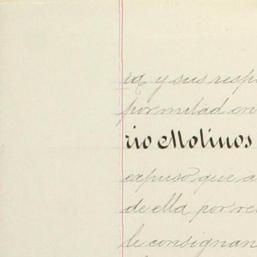 y sus resp
por mitad en
rio Molinos
expuso que a
de ella por re
le consignan